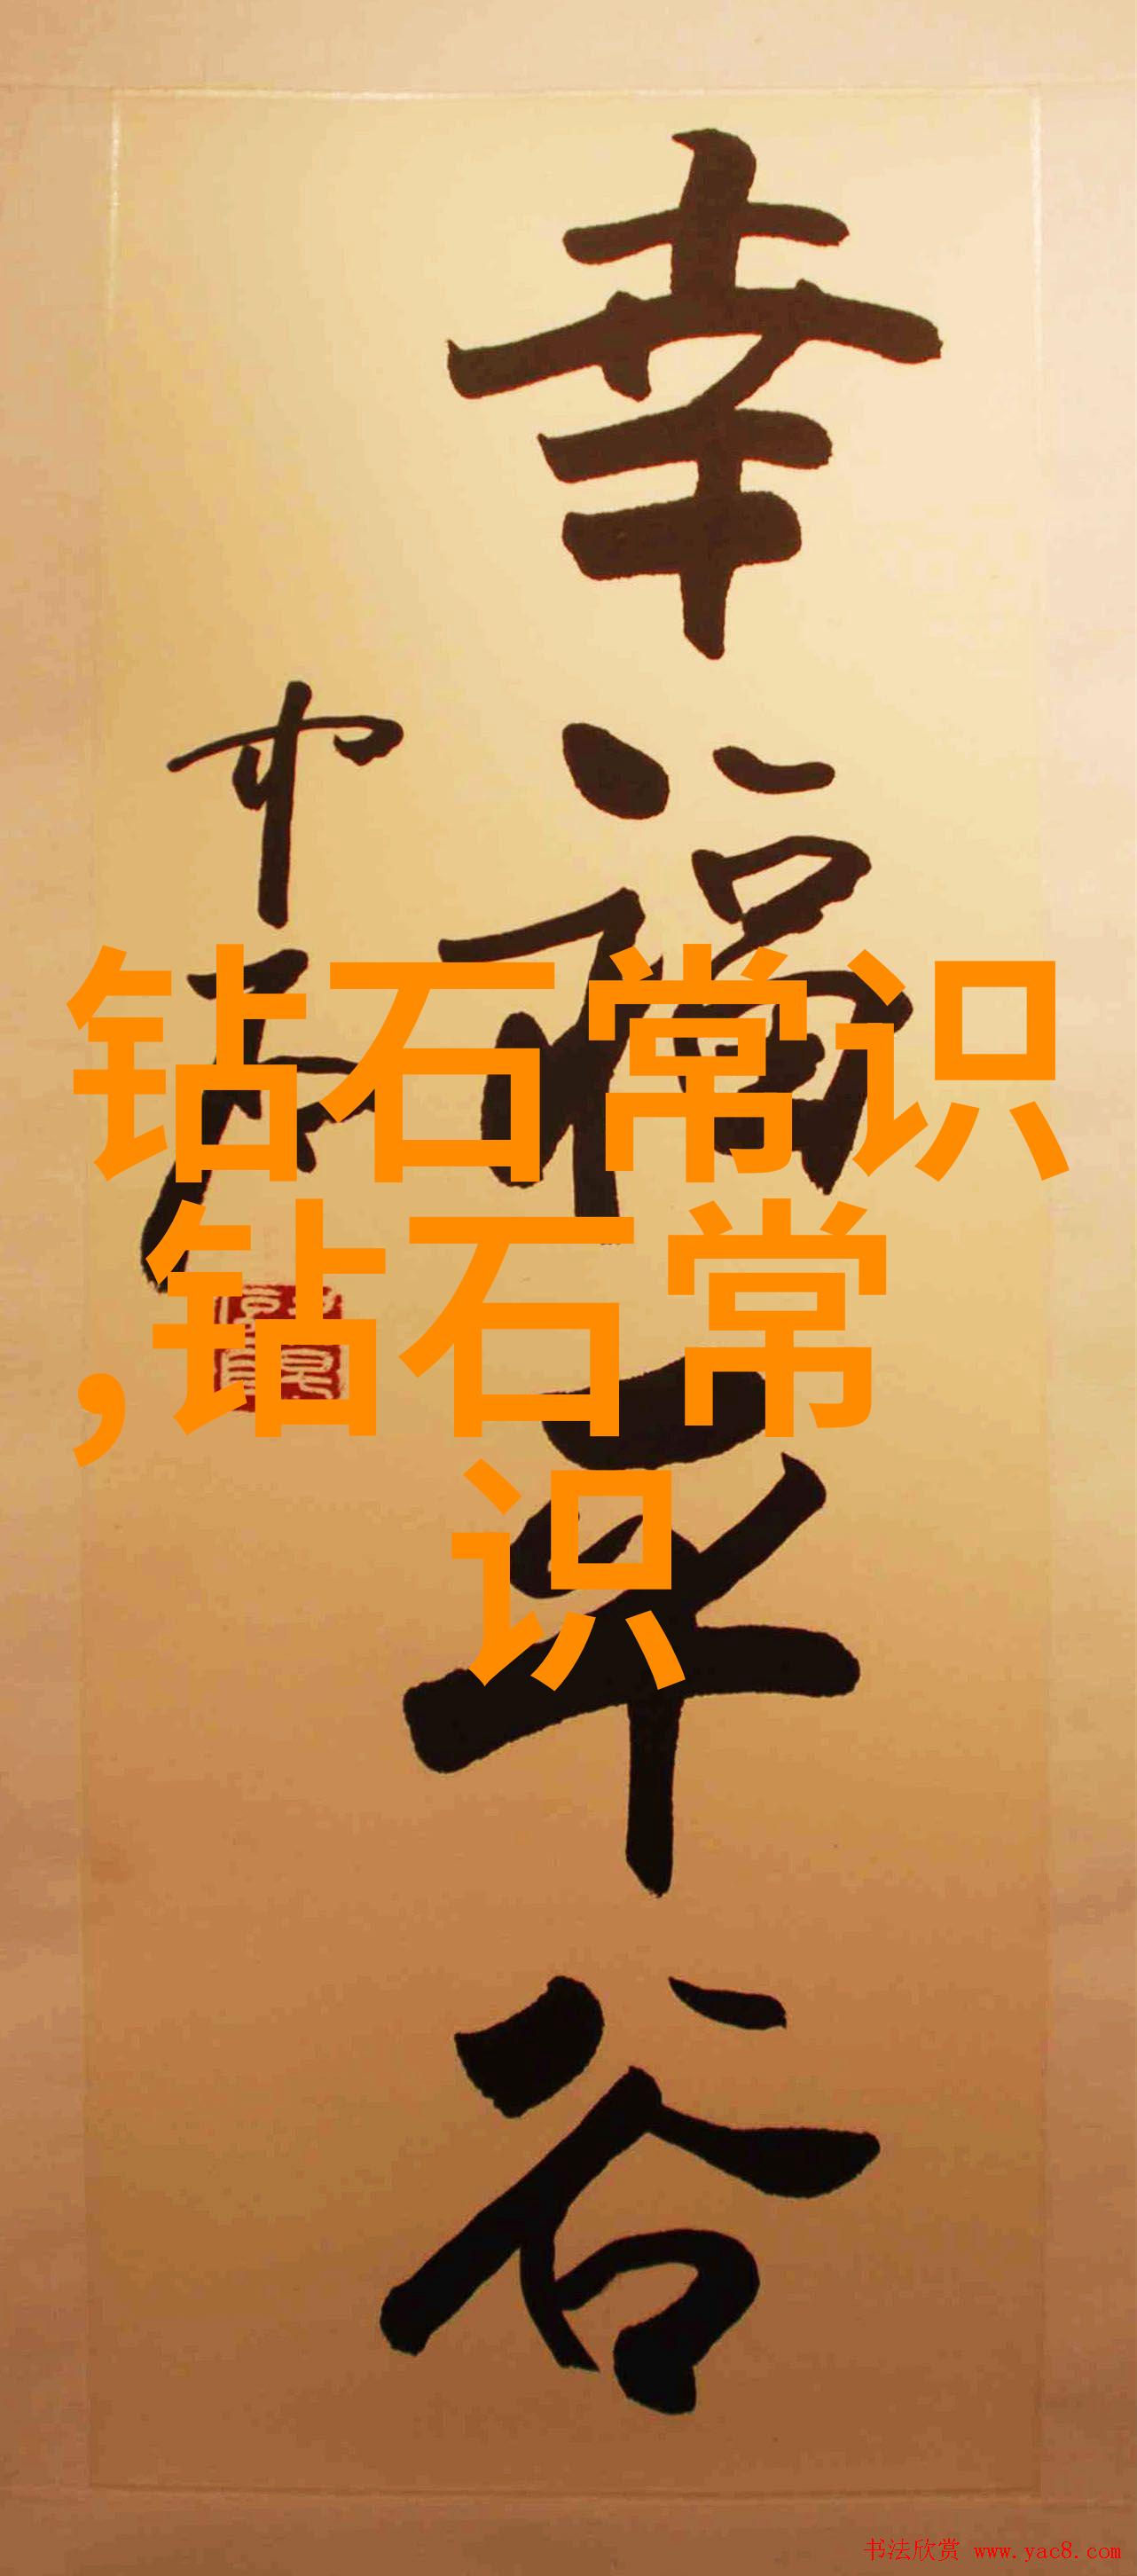 幸福平谷
钻石常识
,钻石常
识
书法欣赏 www.yac8.com